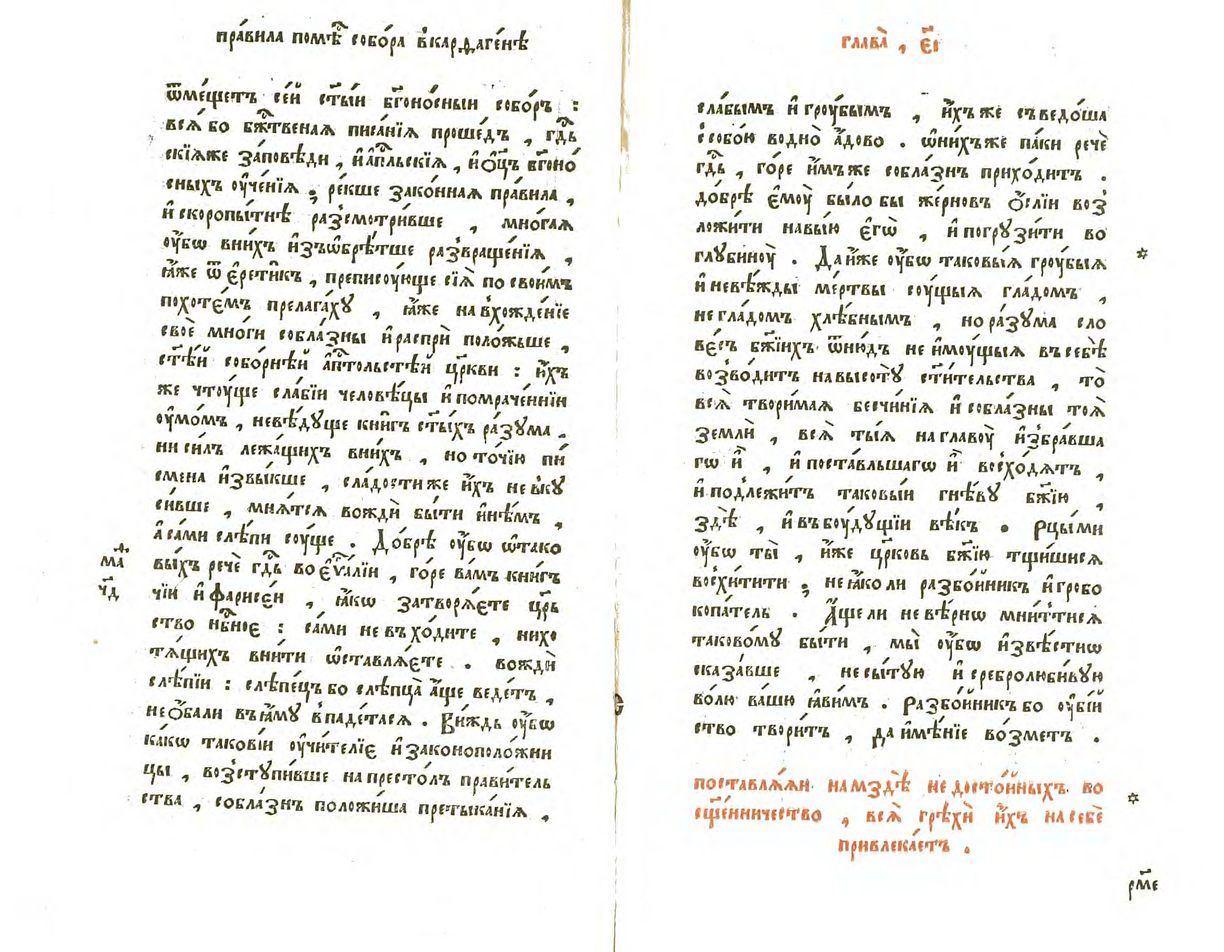 пра́вила помѣ́ собо́ра в̾карѳаге́нѣ
ѿме́щетъ се́й ст҃ы́и б҃гоно́сныи собо́ръ :
всѧ́ бо бж҃твеная писа́нїѧ проше́дъ , гд҇ь
скїѧже за́повѣди , и҆ а҆п҇льскїѧ , и҆ о҆ц҃ъ б҃гоно́
сныхъ ᲂу҆че́нїѧ ; ре́кше зако́нная пра́вила ,
и҆ скоропы́тнѣ раз̾смотри́вше , мно́гая
ᲂу҆́бѡ вни́хъ и҆з̾ѡбрѣ́тше раз̾враще́нїѧ ,
ꙗ҆́же ѿ є҆рети́къ , преписꙋ́юще сїѧ̀ по свои́мъ
по́хотемъ прелага́хꙋ , ꙗ҆́же на в̾хожде́нїе
своѐ мно́ги собла́зны и҆ ра́спри поло́жьше ,
ст҃ѣ́й собо́рнѣй а҆п҇тольстѣ́й цр҃кви : и҆́хъ
же чтꙋ́ще сла́бїи человѣ́цы и҆ помраче́ннїи
ᲂу҆мо́мъ , невѣ́дꙋще кни́гъ ст҃ы́хъ ра́зума ,
ни си́лъ лежа́щихъ вни́хъ , но то́чїю пи́
смена и҆звы́кше , сла́дости же и҆́хъ не в̾кꙋ
си́вше , мнѧ́тсѧ вождѝ бы́ти и҆нѣ́мъ ,
а҆ са́ми слѣ́пи сꙋ́ще . До́брѣ ᲂу҆́бѡ ѡ҆тако
вы́хъ речѐ гд҇ь во є҆ѵ҃а́лїи , го́ре ва́мъ кни́гъ
чїи и҆ фарисе́и , ꙗ҆́кѡ затворѧ́ете цр҇ь
ство нб҇ное : са́ми не в̾хо́дите , ни хо
тѧ́щихъ вни́ти ѡ҆ставлѧ́ете . вождѝ
слѣ́пїи : слѣпе́цъ бо слѣпца̀ а҆́ще веде́тъ ,
не о҆́ба ли въ ꙗ҆́мꙋ в̾паде́тасѧ . Ви́ждь ᲂу҆́бѡ
ка́кѡ такові́и ᲂу҆чи́телїе и҆ законополо́жни
цы , воз̾стꙋпи́вше на престо́лъ прави́тель
ства , собла́знъ положи́ша претыка́нїѧ ,
мѳ҃а
ч҃д
глава̀ , є҃і
сла́бымъ и҆ грꙋ́бымъ , и҆́хъ же съведо́ша
с̾собо́ю во дно̀ а҆́дово . ѡ҆ни́хъ же па́ки речѐ
гд҇ь , го́ре и҆́мъ же собла́знъ прихо́дитъ .
до́брѣ є҆мꙋ̀ бы́ло бы же́рновъ о҆́слїи воз̾
ложи́ти на вы́ю є҆гѡ̀ , и҆ погрꙋзи́ти во
глꙋбинꙋ̀ . Да и҆́же ᲂу҆́бѡ таковы́ѧ грꙋ́быѧ
и҆ невѣ́жды ме́ртвы сꙋ́щыѧ гла́домъ ,
не гла́домъ хлѣ́бнымъ , но ра́зума сло
ве́съ бж҃їихъ ѿню́дъ не и҆мꙋ́щыѧ въ себѣ̀
воз̾во́дитъ на высотꙋ̀ ст҃и́тельства , то̀
всѧ̀ твори́мая бесчи́нїѧ и҆ собла́зны тоѧ̀
землѝ , всѧ̀ ты́ѧ на главꙋ̀ и҆збра́вша
гѡ и҆̀ , и҆ поста́вльшагѡ и҆̀ восхо́дѧтъ ,
и҆ подлежи́тъ таковы́и гнѣ́вꙋ бж҃їю ,
здѣ̀ , и҆ въ бꙋ́дꙋщїи вѣ́къ . Рцы́ ми
ᲂу҆́бѡ ты̀ , и҆́же цр҃ковь бж҃їю тщи́шисѧ
восхи́тити ; не ꙗ҆́ко ли разбо́йникъ и҆ гробо
копа́тель . А҆́ще ли не вѣ́рнѡ мни́тъ тисѧ
тако́вомꙋ бы́ти , мы̀ ᲂу҆́бѡ и҆звѣ́стнѡ
сказа́вше , несы́тꙋю и҆ сребролюби́вꙋю
во́лю ва́шю ꙗ҆ви́мъ . Разбо́йникъ бо ᲂу҆бі́и
ство твори́тъ , да и҆мѣ́нїе во́зметъ .
поставлѧ́ѧи на мздѣ̀ недосто́йныхъ во
сщ҃е́нничество , всѧ̀ грѣхѝ и҆́хъ на себѐ
привлека́етъ .
рм҃е